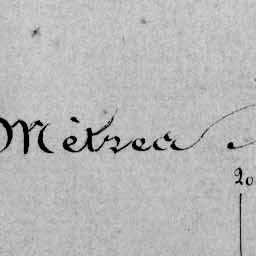 Mètrea
20